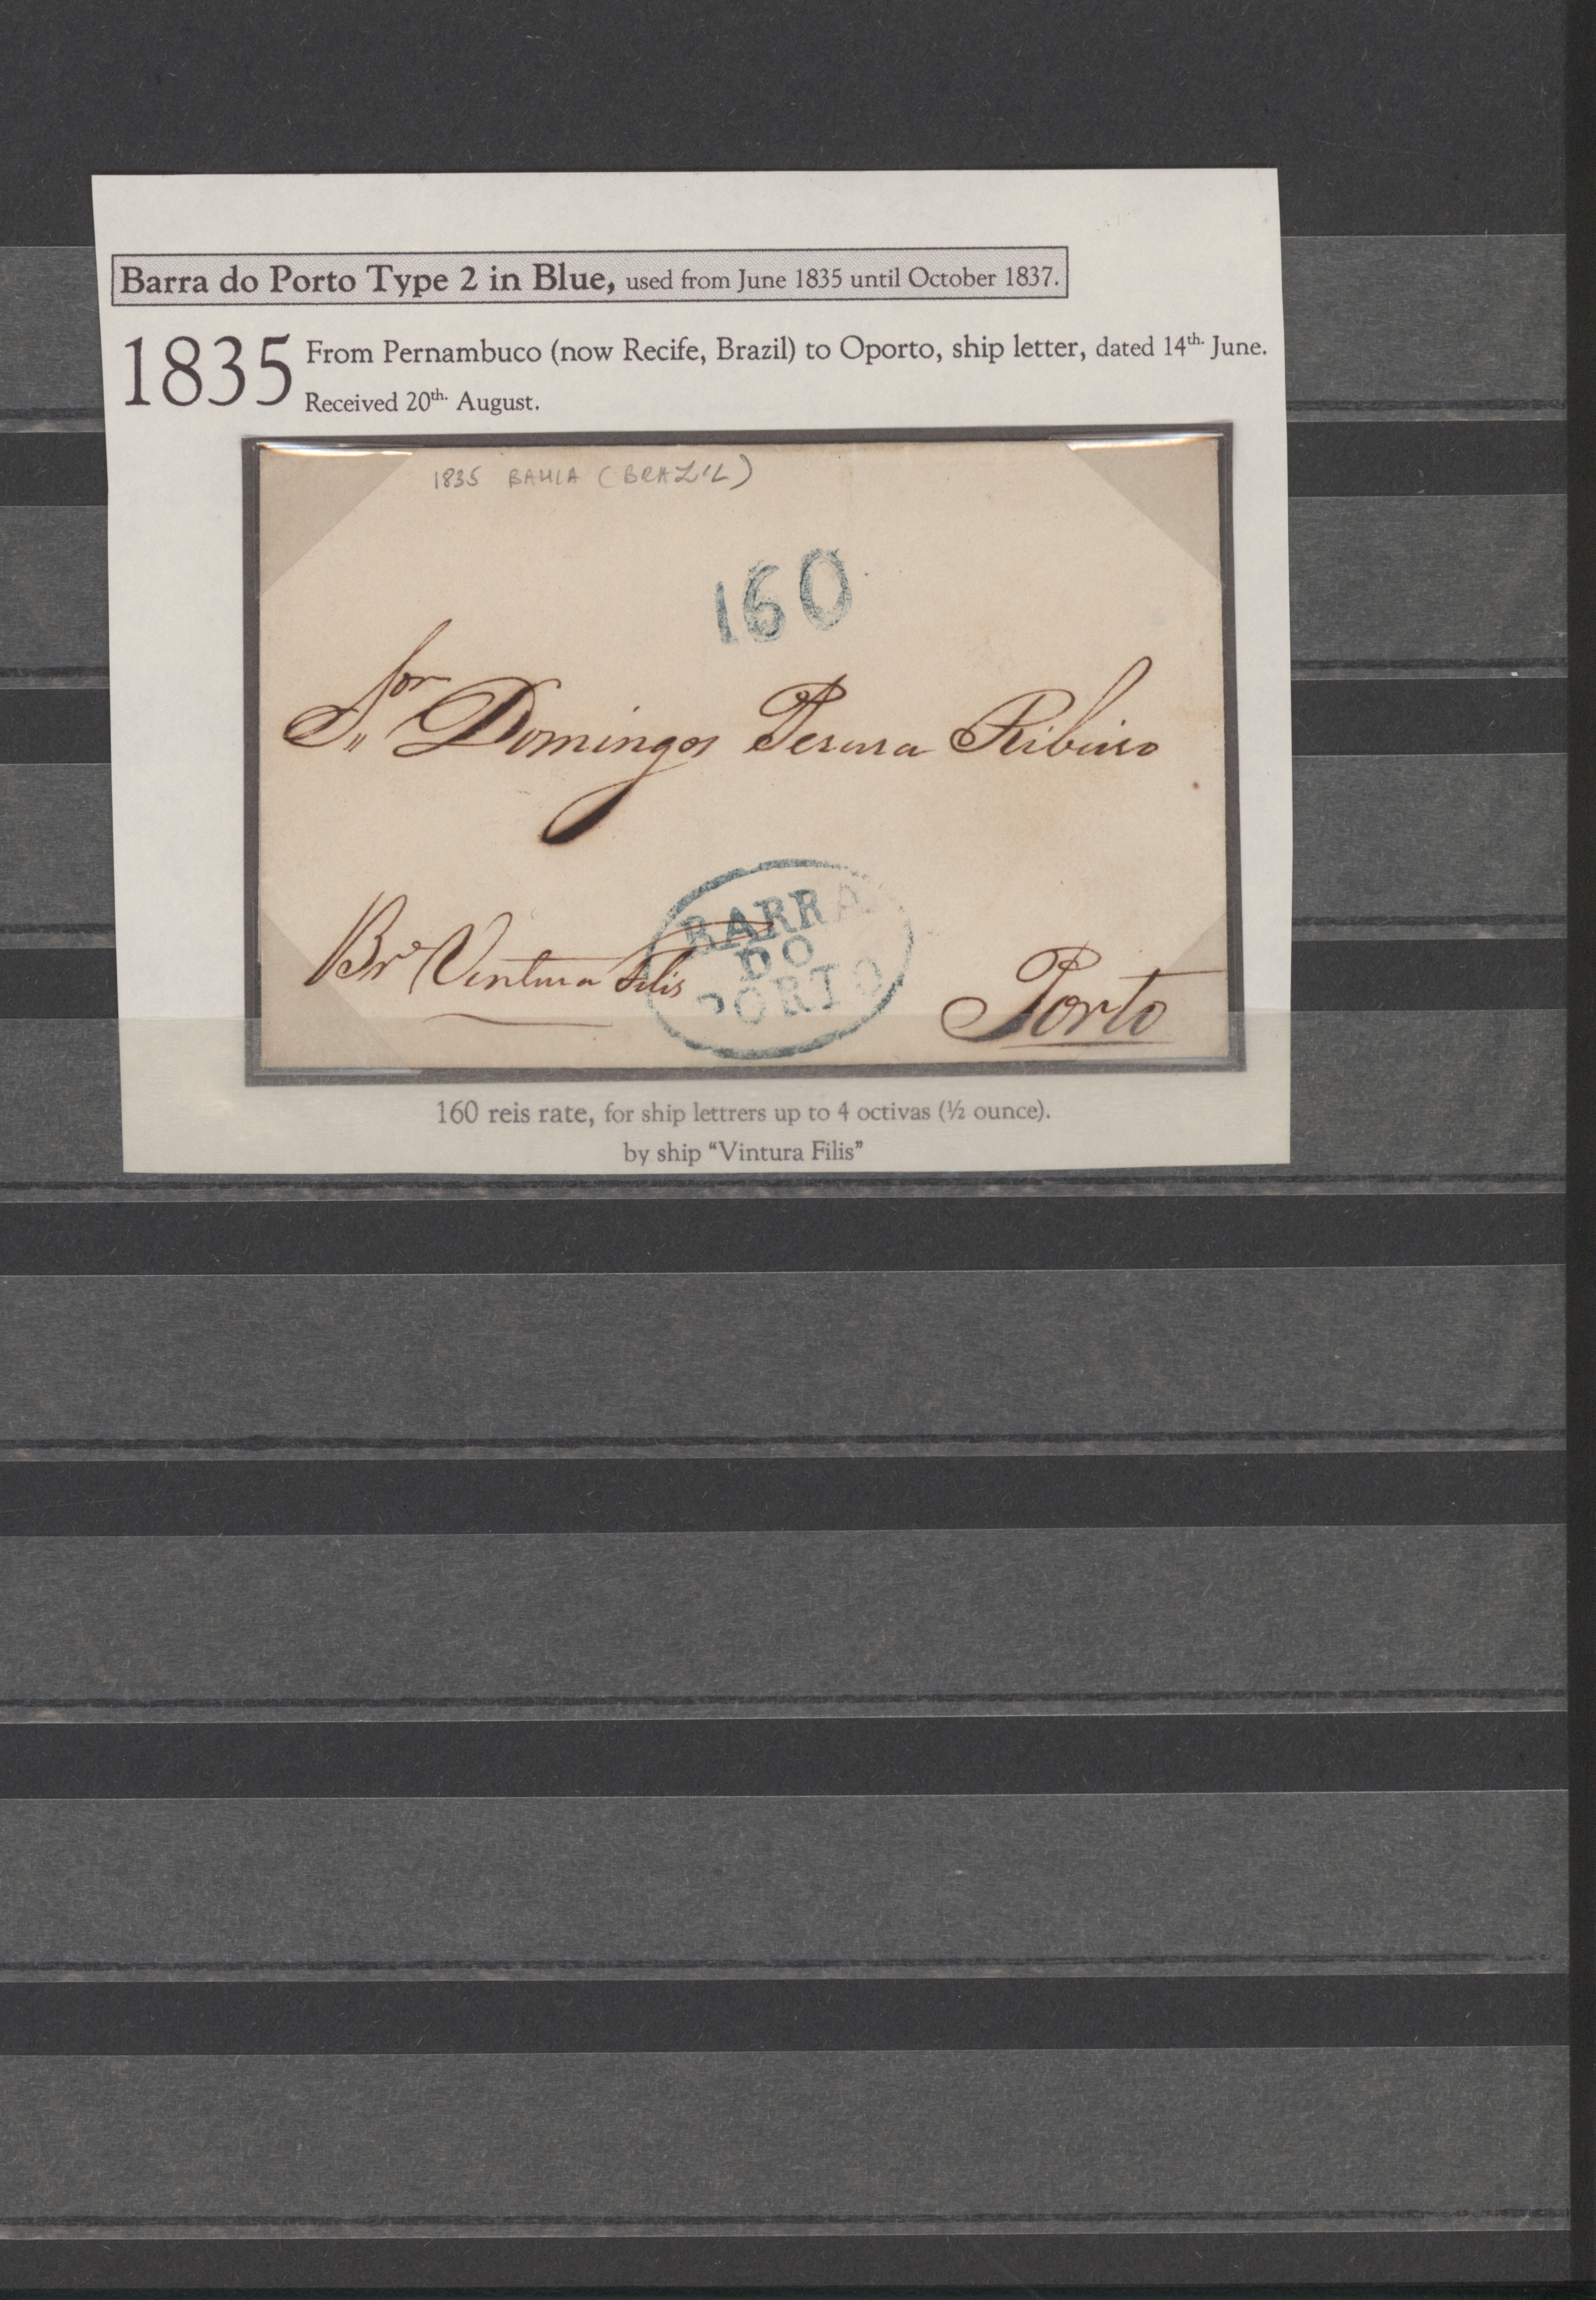 Barra do Porto Type 2 in Blue, used from June 1835 until October 1837.
1835 From Pernambuco (now Recife, Brazil) to Oporto, ship letter, dated 14th. June.
Received 20th. August.
1835 BAHIA (BRAZIL)
160
Sor Domingos Perura Ribeiro
BARRA
DO
PORTO
Br Ventura Filis
Porto
160 reis rate, for ship lettrers up to 4 octivas (½ ounce).
by ship “Vintura Filis”